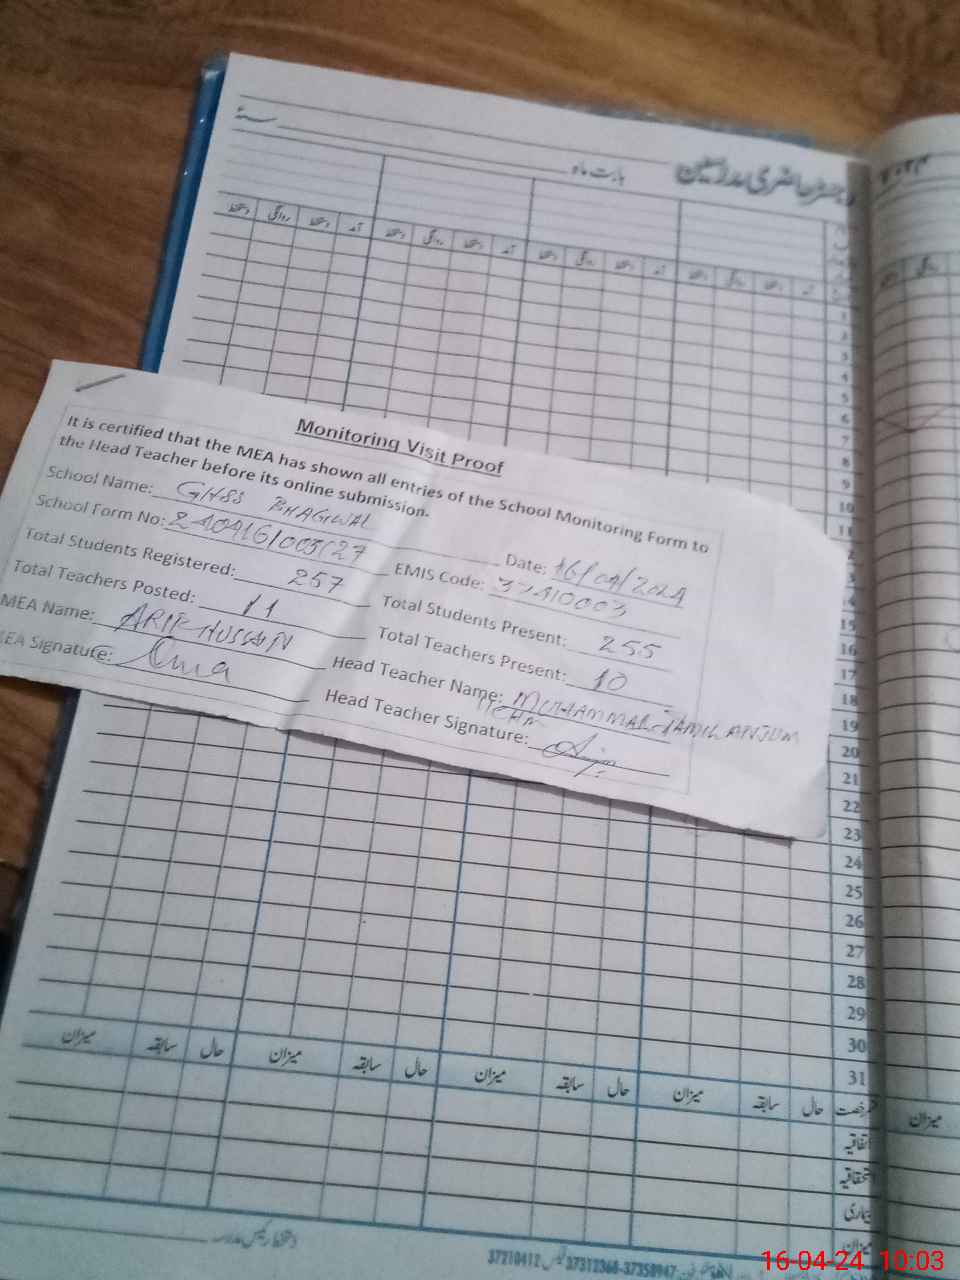 رجسٹر حاضری مدرسین
بابت ماہ
سنہ
آمد دستخط روانگی دستخط آمد دستخط روانگی دستخط آمد دستخط روانگی دستخط آمد دستخط روانگی دستخط
1
2
3
4
5
6
7
8
9
10
11
Monitoring Visit Proof
It is certified that the MEA has shown all entries of the School Monitoring Form to
the Head Teacher before its online submission.
School Name: GHSS BHAGWAL Date: 16/04/2024
School Form No: EMIS Code: 37110003
Total Students Registered: 257 Total Students Present: 255
Total Teachers Posted: 11 Total Teachers Present: 10
MEA Name: ARIF HUSSAIN Head Teacher Name: MUHAMMAD JAMIL ANJUM
MEA Signature: Head Teacher Signature:
14
15
16
17
18
19
20
21
22
23
24
25
26
27
28
29
30
31
حال سابقہ میزان حال سابقہ میزان حال سابقہ میزان حال سابقہ میزان
میزان
اتفاقیہ
استحقاقیہ
بیماری
میزان
دستخط رئیس مدرسہ
37210412 37312368-37358947
16-04-24 10:03